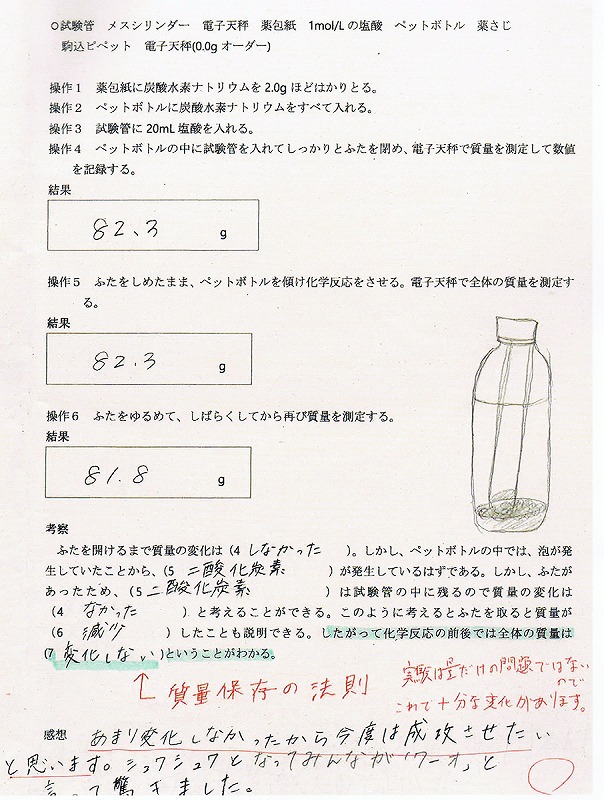 ○試験管　メスシリンダー　電子天秤　薬包紙　1mol/Lの塩酸　ペットボトル　薬さじ
駒込ピペット　電子天秤(0.0g オーダー)
操作1　薬包紙に炭酸水素ナトリウムを 2.0g ほどはかりとる。
操作2　ペットボトルに炭酸水素ナトリウムをすべて入れる。
操作3　試験管に 20mL 塩酸を入れる。
操作4　ペットボトルの中に試験管を入れてしっかりとふたを閉め、電子天秤で質量を測定して数値
を記録する。
結果
82.3　g
操作5　ふたをしめたまま、ペットボトルを傾け化学反応をさせる。電子天秤で全体の質量を測定す
る。
結果
82.3　g
操作6　ふたをゆるめて、しばらくしてから再び質量を測定する。
結果
81.8　g
考察
ふたを開けるまで質量の変化は（4 しなかった　）。しかし、ペットボトルの中では、泡が発
生していたことから、（5 二酸化炭素　）が発生しているはずである。しかし、ふたが
あったため、（5 二酸化炭素　）は試験管の中に残るので質量の変化は
（4 なかった　）と考えることができる。このように考えるとふたを取ると質量が
（6 減少　）したことも説明できる。したがって化学反応の前後では全体の質量は
（7 変化しない）ということがわかる。
↑ 質量保存の法則
実験は量だけの問題ではない
ので
これで十分な変化があります。
感想　あまり変化しなかったから今度は成功させたい
と思います。シュワシュワとなってみんなが「ワーオ」と
言って驚きました。